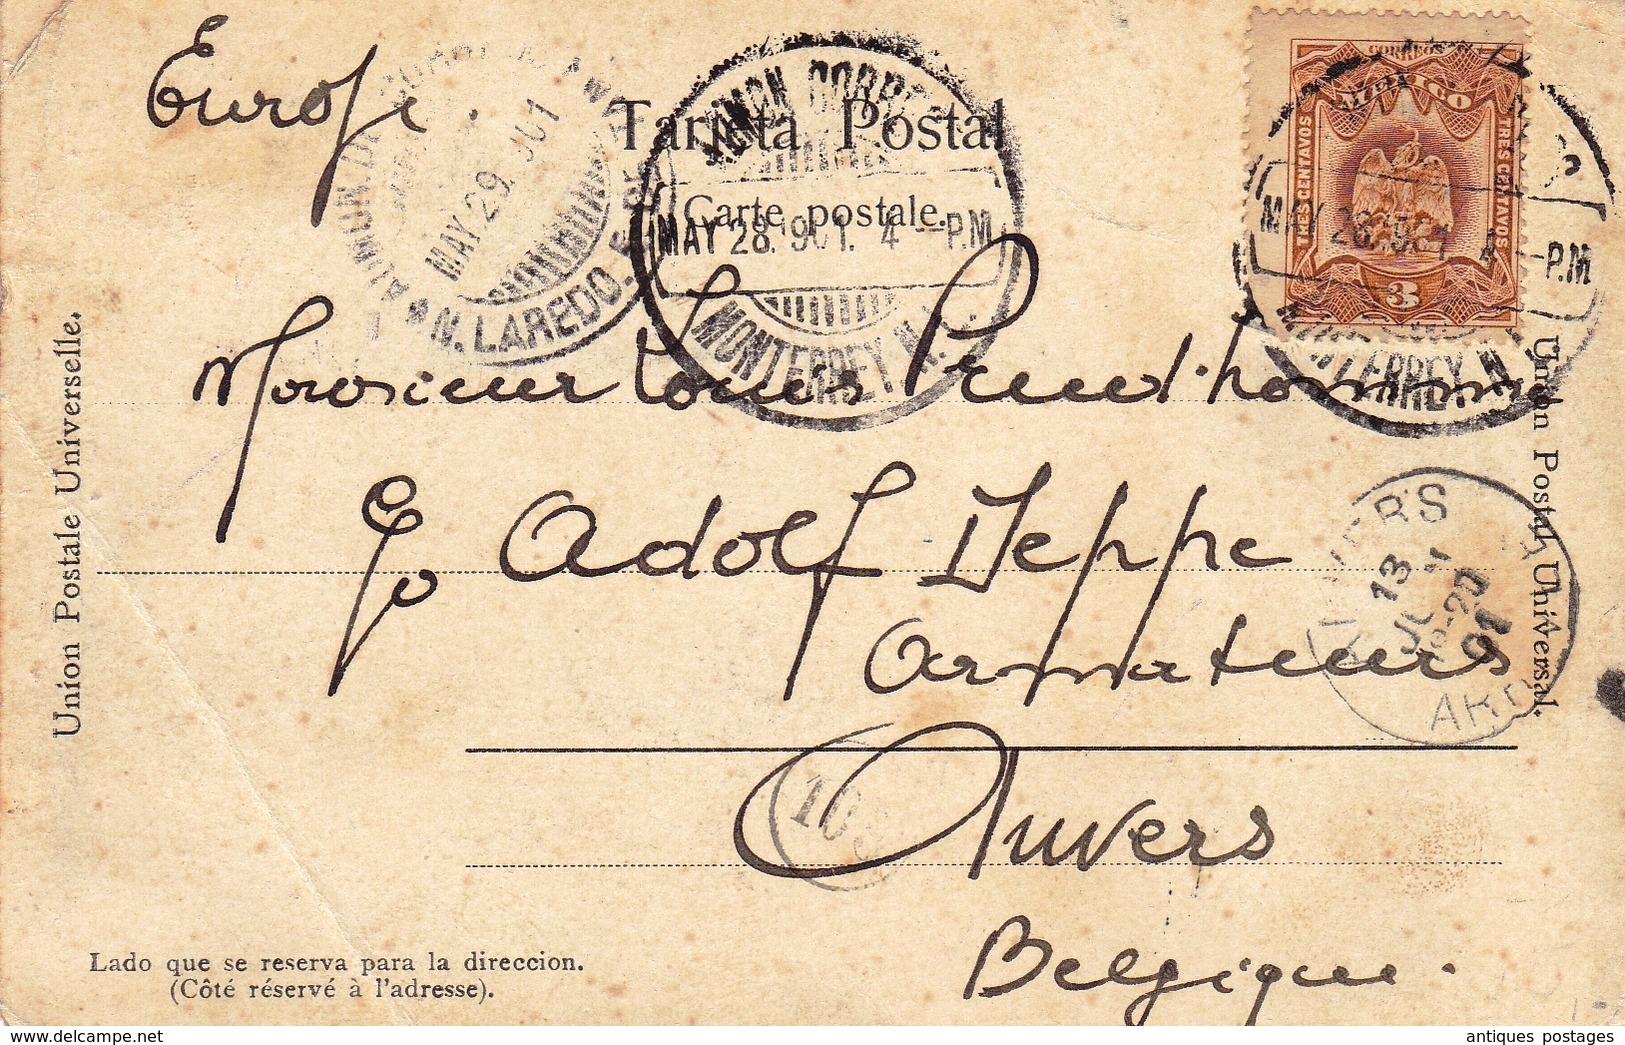 Europe.
Tarjeta Postal
Carte postale.
CORREOS
MEXICO
TRES CENTAVOS
TRES CENTAVOS
3
MAY 28. 1901. 4 - P.M.
MONTERREY N.L.
MAY 28. 1901. 4 - P.M.
MONTERREY N.L.
MAY 29. 901
N. LAREDO.
Monsieur Louis Prud'homme
c/o Adolf Deppe
Armateurs
Anvers
Belgique.
ANVERS
13
8-20
1901
10
Union Postale Universelle.
Unión Postal Universal.
Lado que se reserva para la direccion.
(Côté réservé à l'adresse).
antiques postages